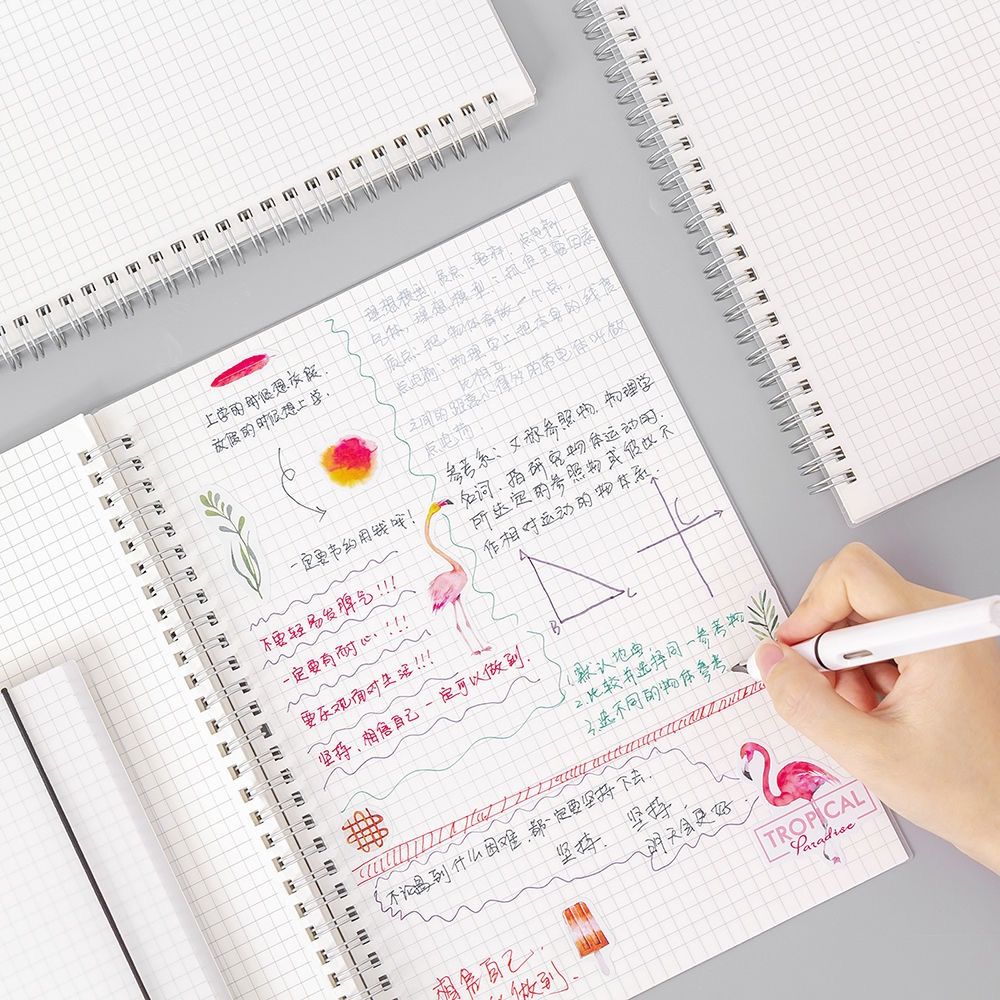 上学的时候想放假.
放假的时候想上学.
一定要节约用钱哦!
不要轻易发脾气!!!
一定要有耐心!!!!
要乐观面对生活!!!
坚持,相信自己一定可以做到.
理想模型:质点、
气体,理想模型:抓住主要因素
质点:把物体看做一个点,
点电荷:物理学上把本身的线度
比相互
之间的距离小得多的带电体叫做
点电荷
参考系:又称参照物,物理学
名词,指研究物体运动时
所选定的参照物或
作相对运动的物体系.
C
A
B
C
1.默认地面
2.比较并选择同一参考物
3.选不同的物体参考
不论遇到什么困难,都一定要坚持下去.
坚持. 坚持. 明天会更好.
TROPICAL
Paradise
相信自己
做到.